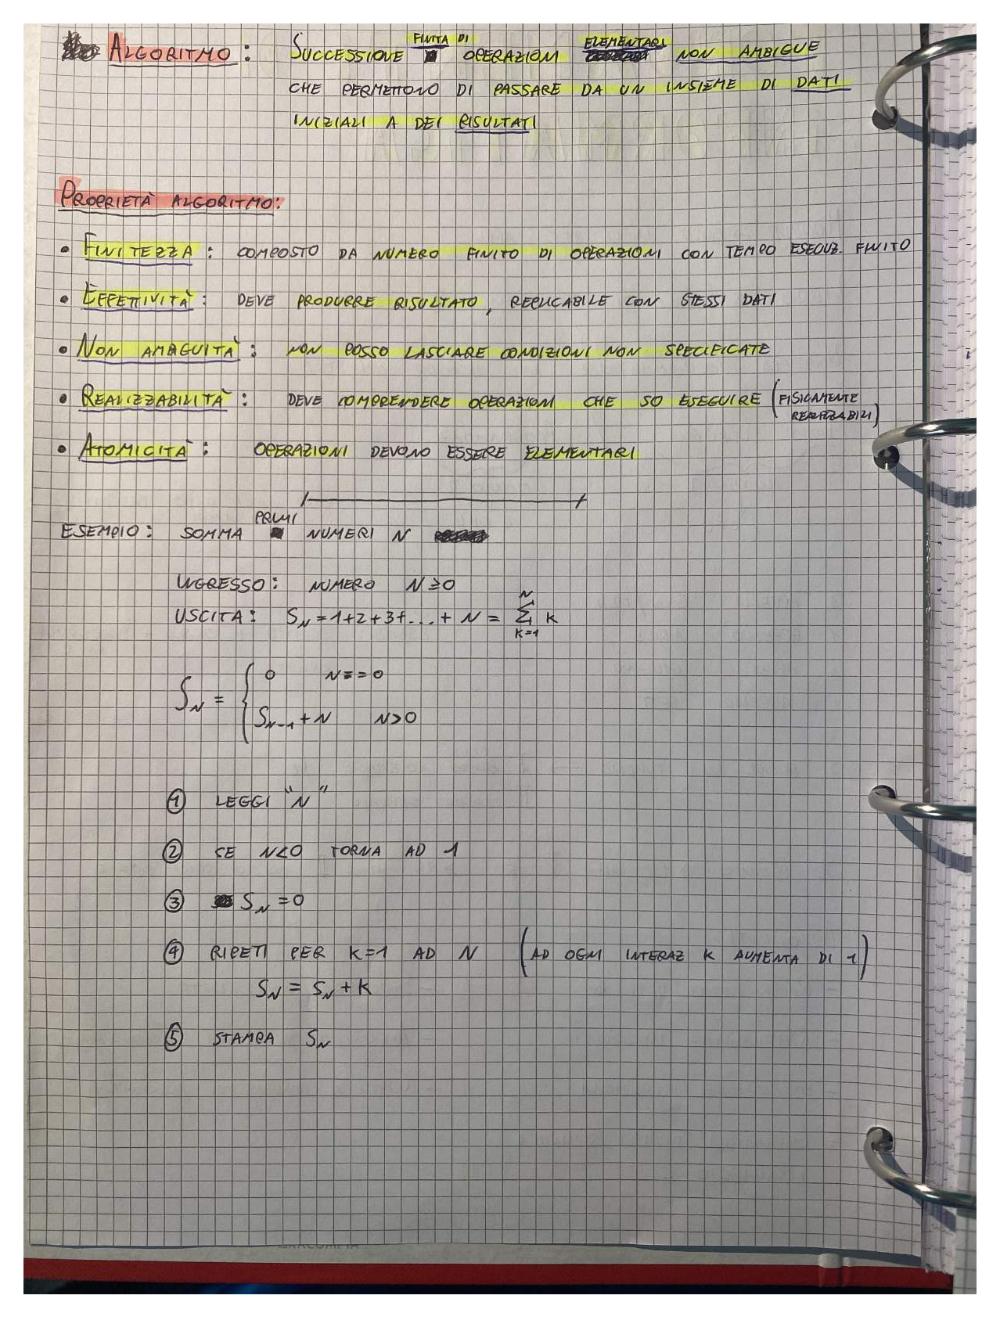 ALGORITMO: SUCCESSIONE FINITA DI OPERAZIONI ELEMENTARI NON AMBIGUE
CHE PERMETTONO DI PASSARE DA UN INSIEME DI DATI
INIZIALI A DEI RISULTATI
PROPRIETÀ ALGORITMO:
• FINITEZZA: COMPOSTO DA NUMERO FINITO DI OPERAZIONI CON TEMPO ESECUZ. FINITO
• EFFETTIVITÀ: DEVE PRODURRE RISULTATO, REPLICABILE CON STESSI DATI
• NON AMBIGUITÀ: NON POSSO LASCIARE CONDIZIONI NON SPECIFICATE
• REALIZZABILITÀ: DEVE COMPRENDERE OPERAZIONI CHE SO ESEGUIRE (FISICAMENTE
REALIZZABILI)
• ATOMICITÀ: OPERAZIONI DEVONO ESSERE ELEMENTARI
ESEMPIO: SOMMA PRIMI NUMERI N
INGRESSO: NUMERO N≥0
USCITA: S_N = 1+2+3+...+ N = ∑_{K=1}^{N} K
S_N = { 0 N==0
S_{N-1} + N N>0
① LEGGI "N"
② SE N<0 TORNA AD 1
③ S_N = 0
④ RIPETI PER K=1 AD N (AD OGNI INTERAZ K AUMENTA DI 1)
S_N = S_N + K
⑤ STAMPA S_N